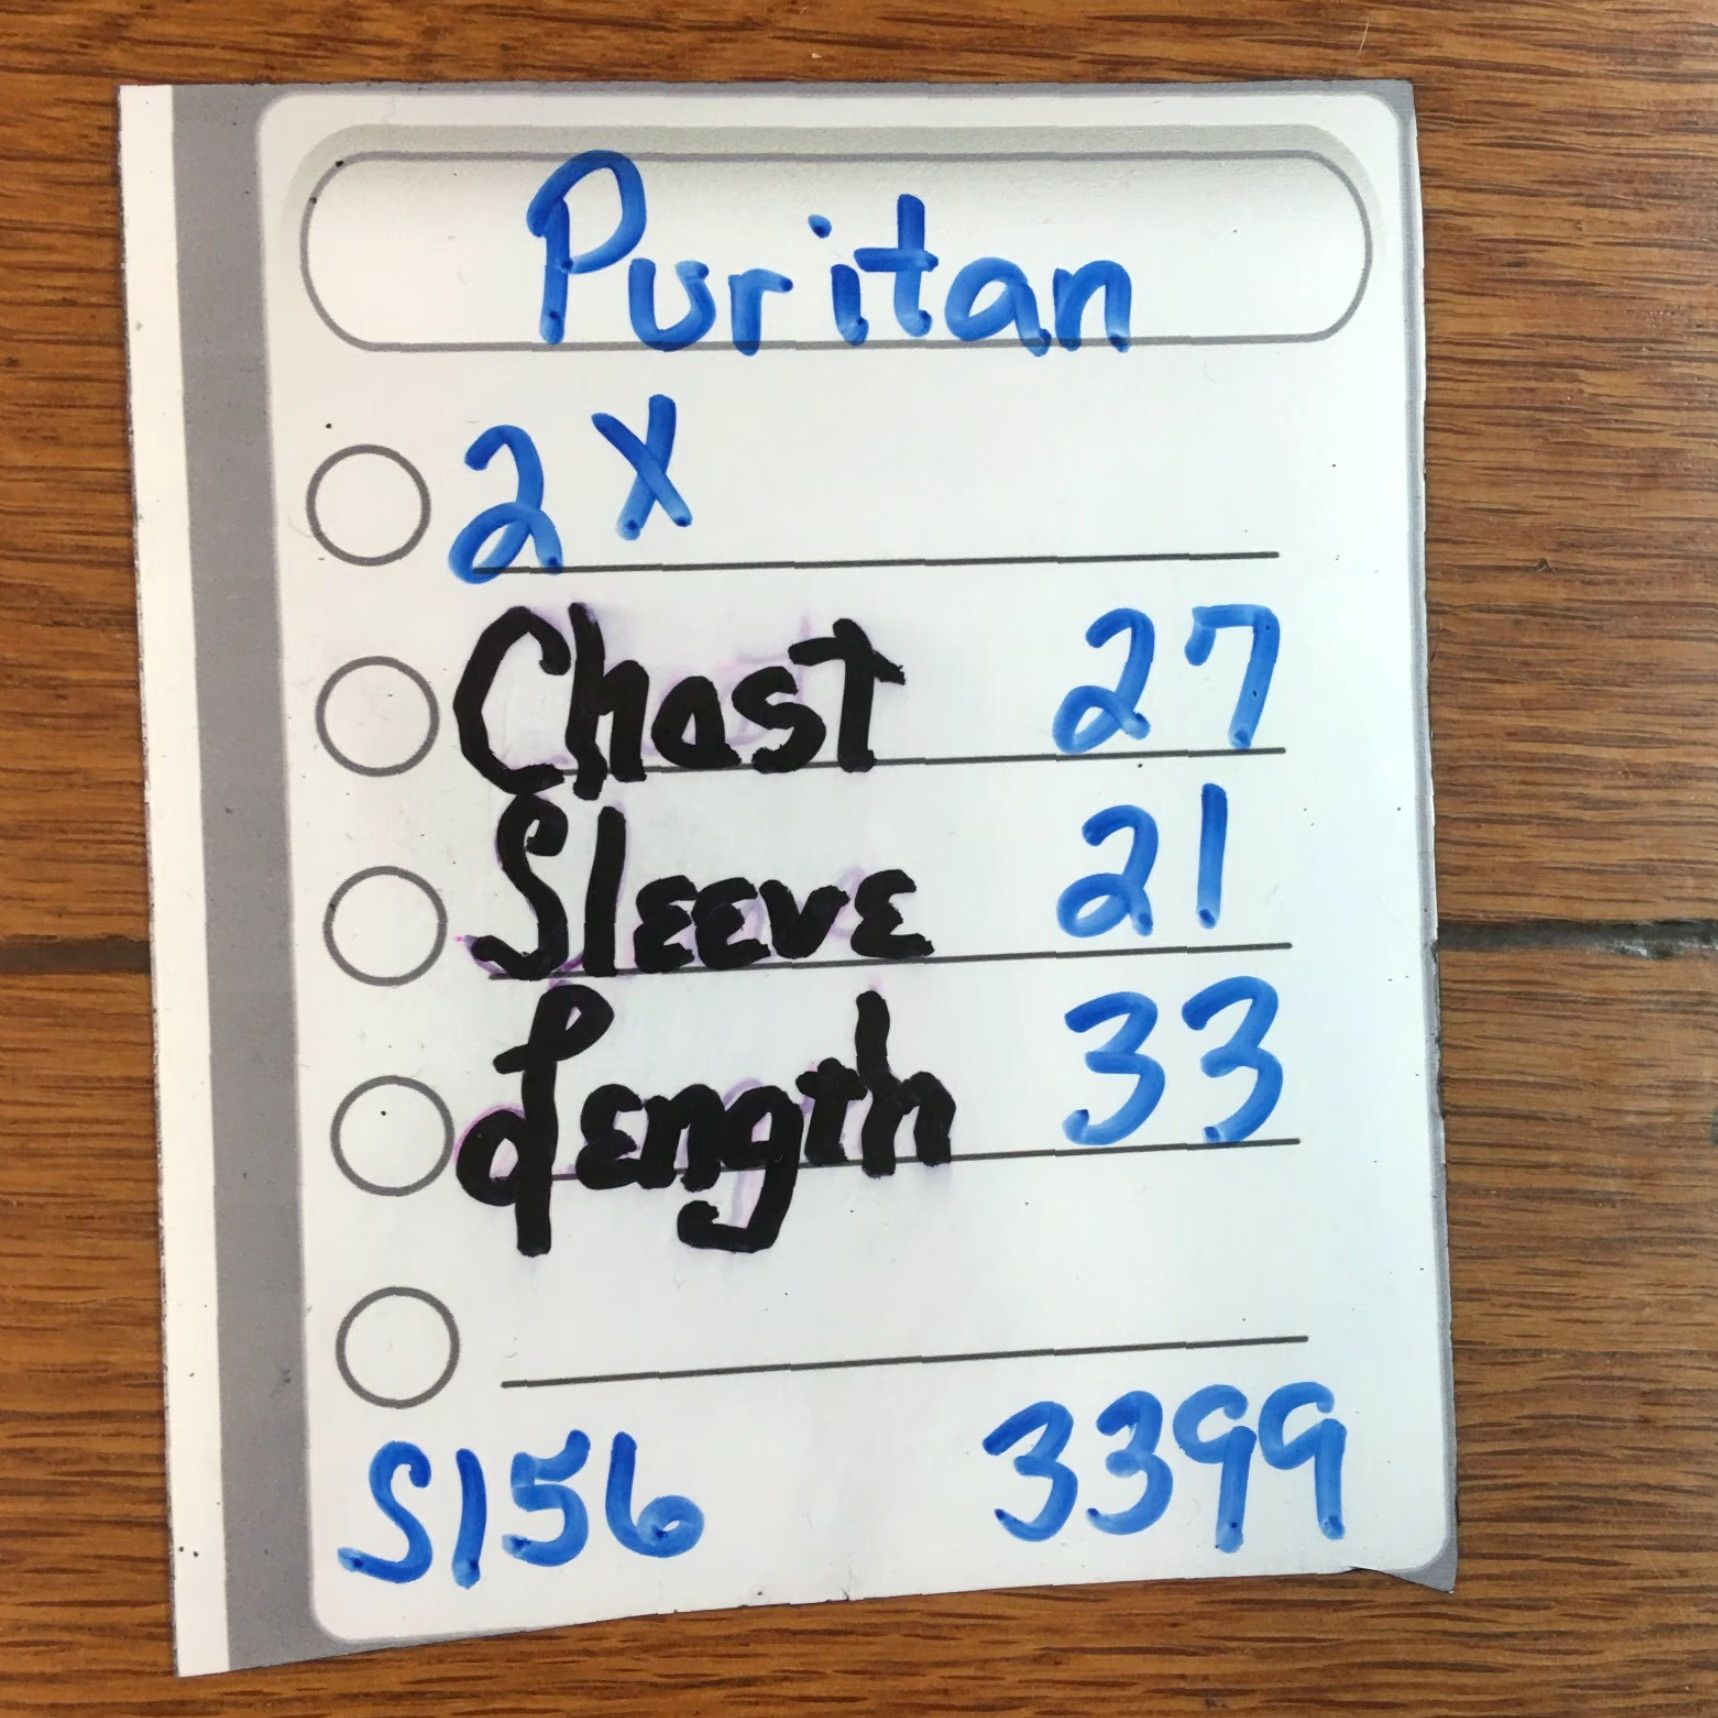 Puritan
2X
Chast 27
Sleeve 21
Length 33
S156 3399